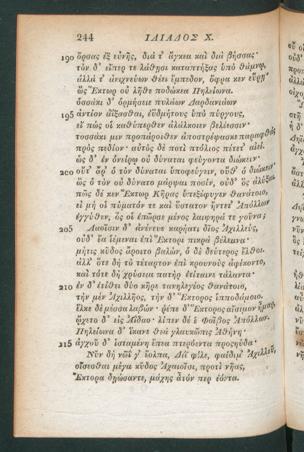 244 ΙΛΙΑΔΟΣ Χ.
190 ὄρσας ἐξ εὐνῆς, διά τ' ἄγκεα καὶ διὰ βήσσας·
τὸν δ' εἴπερ τε λάθῃσι καταπτήξας ὑπὸ θάμνῳ,
ἀλλά τ' ἀνιχνεύων θέει ἔμπεδον, ὄφρα κεν εὕρῃ·
ὣς Ἕκτωρ οὐ λῆθε ποδώκεα Πηλείωνα.
ὁσσάκι δ' ὁρμήσειε πυλάων Δαρδανιάων
195 ἀντίον ἀΐξασθαι, ἐϋδμήτους ὑπὸ πύργους,
εἴ πώς οἱ καθύπερθεν ἀλάλκοιεν βελέεσσιν·
τοσσάκι μιν προπάροιθεν ἀποστρέψασκε παραφθὰς
πρὸς πεδίον· αὐτὸς δὲ ποτὶ πτόλιος πέτετ' αἰεί.
ὡς δ' ἐν ὀνείρῳ οὐ δύναται φεύγοντα διώκειν·
200 οὔτ' ἄρ' ὁ τὸν δύναται ὑποφεύγειν, οὔθ' ὁ διώκειν·
ὣς ὁ τὸν οὐ δύνατο μάρψαι ποσίν, οὐδ' ὃς ἀλύξαι.
πῶς δέ κεν Ἕκτωρ Κῆρας ὑπεξέφυγεν θανάτοιο,
εἰ μή οἱ πύματόν τε καὶ ὕστατον ἤντετ' Ἀπόλλων
ἐγγύθεν, ὅς οἱ ἐπῶρσε μένος λαιψηρά τε γοῦνα;
205 Λαοῖσιν δ' ἀνένευε καρήατι δῖος Ἀχιλλεύς,
οὐδ' ἔα ἱέμεναι ἐπὶ Ἕκτορι πικρὰ βέλεμνα·
μήτις κῦδος ἄροιτο βαλών, ὁ δὲ δεύτερος ἔλθοι.
ἀλλ' ὅτε δὴ τὸ τέταρτον ἐπὶ κρουνοὺς ἀφίκοντο,
καὶ τότε δὴ χρύσεια πατὴρ ἐτίταινε τάλαντα·
210 ἐν δ' ἐτίθει δύο κῆρε τανηλεγέος θανάτοιο,
τὴν μὲν Ἀχιλλῆος, τὴν δ' Ἕκτορος ἱπποδάμοιο.
ἕλκε δὲ μέσσα λαβών· ῥέπε δ' Ἕκτορος αἴσιμον ἦμαρ,
ᾤχετο δ' εἰς Ἀΐδαο· λίπεν δέ ἑ Φοῖβος Ἀπόλλων.
Πηλείωνα δ' ἵκανε θεὰ γλαυκῶπις Ἀθήνη·
215 ἀγχοῦ δ' ἱσταμένη ἔπεα πτερόεντα προςηύδα·
Νῦν δὴ νῶΐ γ' ἔολπα, Διῒ φίλε, φαίδιμ' Ἀχιλλεῦ,
οἴσεσθαι μέγα κῦδος Ἀχαιοῖσι, προτὶ νῆας,
Ἕκτορα δῃώσαντε, μάχης ἆτόν περ ἐόντα.